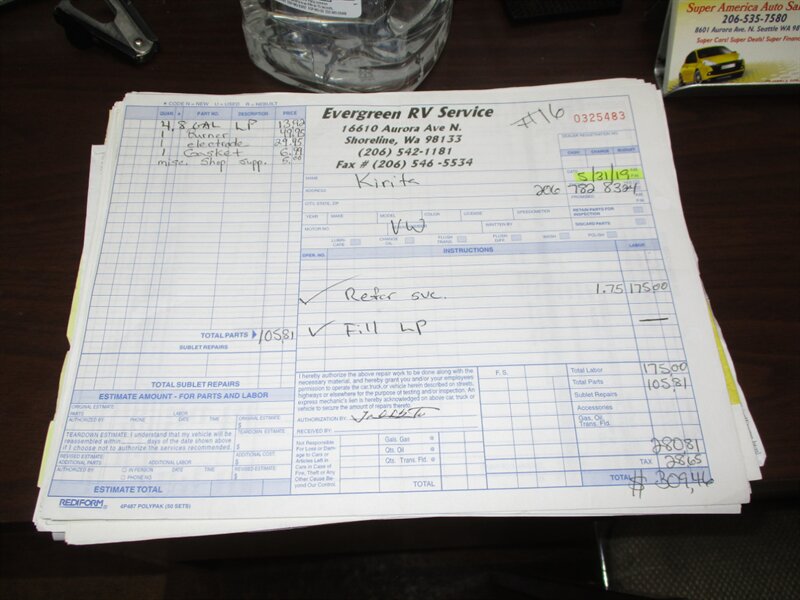 Super America Auto Sa
206-535-7580
8601 Aurora Ave. N. Seattle WA 98
Super Cars! Super Deals! Super Financ
★ CODE N = NEW U = USED R = REBUILT
QUAN. PART NO. DESCRIPTION PRICE
4.8 GAL LP 13.92
1 burner 49.95
1 electrode 29.95
1 Gasket 6.99
misc. Shop supp. 5.00
TOTAL PARTS 105.81
SUBLET REPAIRS
TOTAL SUBLET REPAIRS
ESTIMATE AMOUNT - FOR PARTS AND LABOR
ORIGINAL ESTIMATE
PARTS LABOR
AUTHORIZED BY PHONE DATE TIME ORIGINAL ESTIMATE
$
TEARDOWN ESTIMATE. I understand that my vehicle will be
reassembled within ______ days of the date shown above
if I choose not to authorize the services recommended.
TEARDOWN ESTIMATE
$
REVISED ESTIMATE
ADDITIONAL PARTS ADDITIONAL LABOR
ADDITIONAL COST
$
AUTHORIZED BY IN PERSON DATE TIME
PHONE NO.
REVISED ESTIMATE
$
ESTIMATE TOTAL
REDIFORM® 4P487 POLYPAK (50 SETS)
Evergreen RV Service
16610 Aurora Ave N.
Shoreline, Wa 98133
(206) 542-1181
Fax # (206) 546 -5534
#16
0325483
DEALER REGISTRATION NO.
CASH CHARGE BUDGET
DATE 5/31/19
NAME Kinita
ADDRESS 206 782 8324
PROMISED
CITY, STATE, ZIP
YEAR MAKE MODEL COLOR LICENSE SPEEDOMETER
RETAIN PARTS FOR INSPECTION
VW
MOTOR NO. WRITTEN BY
DISCARD PARTS
LUBRI-CATE CHANGE OIL FLUSH TRANS. FLUSH DIFF. WASH POLISH
OPER. NO. INSTRUCTIONS LABOR
✓ Refer svc. 1.75 175.00
✓ Fill LP —
I hereby authorize the above repair work to be done along with the
necessary material, and hereby grant you and/or your employees
permission to operate the car, truck or vehicle herein described on streets,
highways or elsewhere for the purpose of testing and/or inspection. An
express mechanic's lien is hereby acknowledged on above car, truck or
vehicle to secure the amount of repairs thereto.
AUTHORIZATION BY
RECEIVED BY
Not Responsible
For Loss or Dam-
age to Cars or
Articles Left in
Cars in Case of
Fire, Theft or Any
Other Cause Be-
yond Our Control.
Gals. Gas @
Qts. Oil @
Qts. Trans. Fld. @
TOTAL
F. S.
Total Labor 175.00
Total Parts 105.81
Sublet Repairs
Accessories
Gas, Oil,
Trans. Fld.
280.81
TAX 28.65
TOTAL $ 309.46